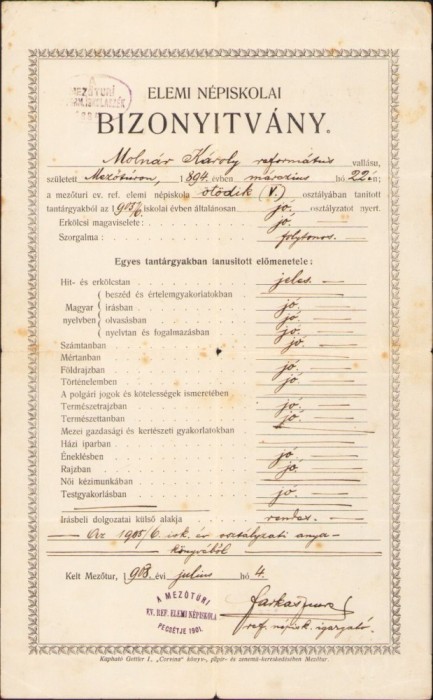 A MEZŐTURI
ELEMI NÉPISKOLAI
BIZONYITVÁNY.
Molnár Károly református vallásu,
született Mezőtúron, 1894. évben március hó 22-én;
a mezőturi ev. ref. elemi népiskola ötödik (V.) osztályában tanított
tantárgyakból az 1905/6. iskolai évben általánosan jó osztályzatot nyert.
Erkölcsi magaviselete: jó.
Szorgalma: folytonos.
Egyes tantárgyakban tanusított előmenetele:
Hit- és erkölcstan jeles.
Magyar nyelvben
beszéd és értelemgyakorlatokban
írásban jó
olvasásban jó
nyelvtan és fogalmazásban jó
Számtanban jó
Mértanban
Földrajzban jó
Történelemben jó
A polgári jogok és kötelességek ismeretében
Természetrajzban jó
Természettanban jó
Mezei gazdasági és kertészeti gyakorlatokban
Házi iparban
Éneklésben jó
Rajzban jó
Női kézimunkában
Testgyakorlásban jó
Irásbeli dolgozatai külső alakja rendes.
Az 1905/6 isk. év osztályzati anya-
könyvéből
Kelt Mezőtur, 1908. évi julius hó 4.
A MEZŐTÚRI
EV. REF. ELEMI NÉPISKOLA
PECSÉTJE 1901.
Farkas
ref. népisk. igazgató.
Kapható Gettler I. „Corvina" könyv-, papir- és zenemű-kereskedésében Mezőtur.